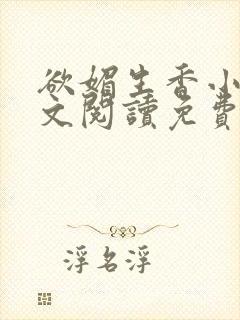 欲媚生香小
文閱讀免費
浮名浮